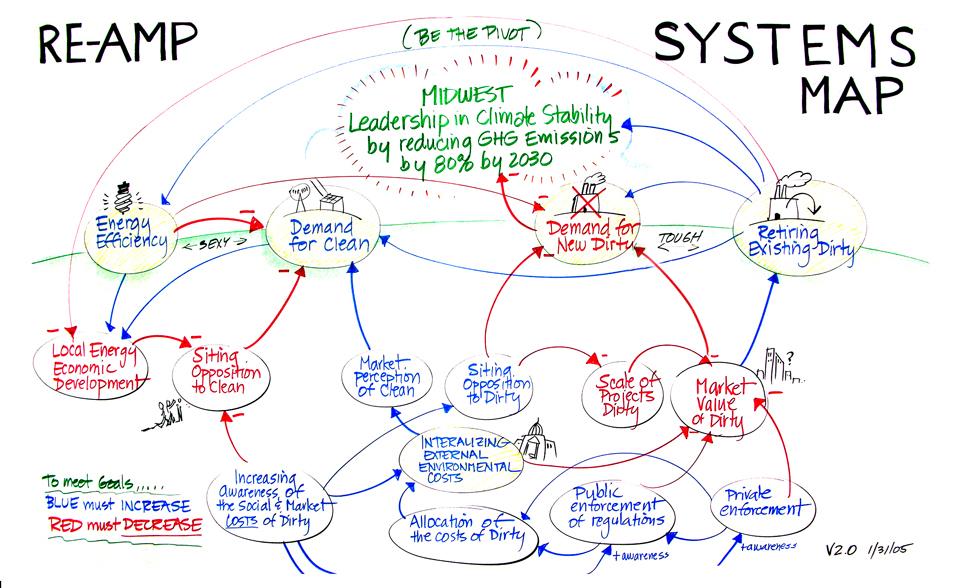 RE-AMP
(BE THE PIVOT)
SYSTEMS
MAP
MIDWEST
Leadership in Climate Stability
by reducing GHG Emissions
by 80% by 2030
Energy
Efficiency
← SEXY →
Demand
for Clean
Demand for
New Dirty
TOUGH
Retiring
Existing-Dirty
Local Energy
Economic
Development
Siting
Opposition
to Clean
Market
Perception
of Clean
Siting
Opposition
to Dirty
Scale of
Projects
Dirty
Market
Value
of Dirty
?
INTERALIZING
EXTERNAL
ENVIRONMENTAL
COSTS
To meet Goals.....
BLUE must INCREASE
RED must DECREASE
Increasing
awareness of
the Social & Market
COSTS of Dirty
Allocation of
the costs of Dirty
Public
enforcement
of regulations
Private
enforcement
+awareness
+awareness
V2.0 1/31/05